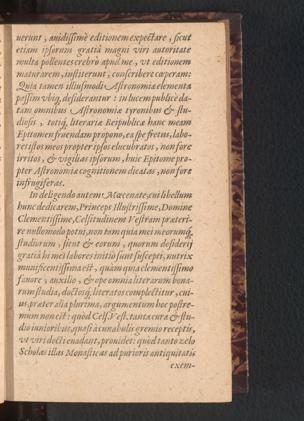 uerunt, auidissimè editionem expectare, sicut
etiam ipsorum gratiâ magni viri autoritate
multa pollentes crebrò apud me, vt editionem
maturarem, institerunt, conscribere cœperam:
Quia tamen illiusmodi Astronomiæ elementa
passim vbiq, desiderantur: in lucem publicè da-
tam omnibus Astronomiæ tyronibus & stu-
diosis, totiq, literariæ Reipublicæ hanc meam
Epitomen fruendam propono, ea spe fretus, labo-
res istos meos propter ipsos elucubratos, non fore
irritos, & vigilias ipsorum, huic Epitome pro-
pter Astronomiæ cognitionem dicatas, non fore
infrugiferas.
In deligendo autem Mæcenate, cui libellum
hunc dedicarem, Princeps Illustrissime, Domine
Clementissime, Celsitudinem Vestram præteri-
re nullo modo potui, non tam quia mei meorumq,
studiorum, sicut & eorum, quorum desiderij
gratiâ hi mei labores initiò sunt suscepti, nutrix
munificentissima est, quàm quia clementissimo
fauore, auxilio, & ope omnia literarum bona-
rum studia, doctosq, literatos complectitur, cui-
us, præter alia plurima, argumentum hoc postre-
mum non est: quòd Cels. Vest. tanta cura & stu-
dio iuniorib. us, quasi à cunabulis gremio receptis,
vt viri docti euadant, prouidet: quòd tanto zelo
Scholas illas Monasticas ad purioris antiquitatis
exem-